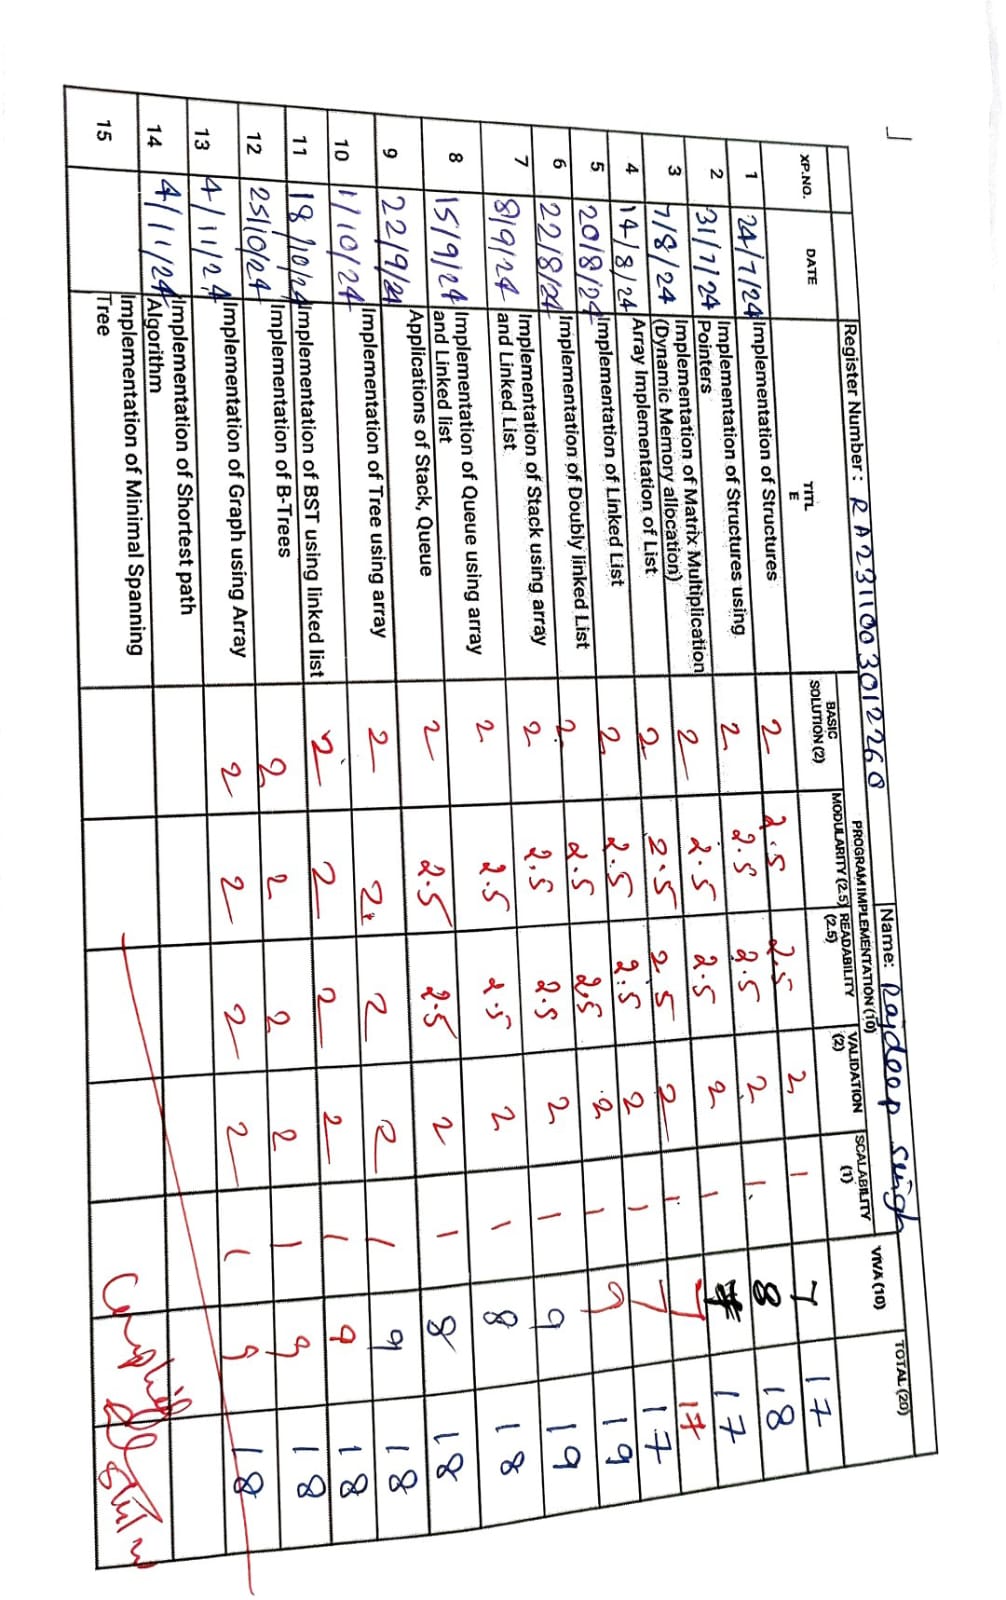 Name: Rajdeep Singh
Register Number : RA2311003012260
PROGRAM IMPLEMENTATION (10)
VIVA (10)
TOTAL (20)
XP.NO.
DATE
TITL
E
BASIC
SOLUTION (2)
MODULARITY (2.5)
READABILITY
(2.5)
VALIDATION
(2)
SCALABILITY
(1)
1 24/7/24 Implementation of Structures 2 2.5 2.5 2 1 7 17
2 31/7/24 Implementation of Structures using
Pointers 2 2.5 2.5 2 1. 8 18
3 7/8/24 Implementation of Matrix Multiplication
(Dynamic Memory allocation) 2 2.5 2.5 2 1 7 17
4 14/8/24 Array Implementation of List 2 2.5 2.5 2 1 7 17
5 20/8/24 Implementation of Linked List 2 2.5 2.5 2 1 7 17
6 22/8/24 Implementation of Doubly linked List 2 2.5 2.5 2 1 9 19
7 8/9/24 Implementation of Stack using array
and Linked List 2 2.5 2.5 2 1 9 19
8 15/9/24 Implementation of Queue using array
and Linked list 2 2.5 2.5 2 1 8 18
9 22/9/24 Applications of Stack, Queue 2 2.5 2.5 2 1 8 18
10 1/10/24 Implementation of Tree using array 2 2 2 2 1 9 18
11 18/10/24 Implementation of BST using linked list 2 2 2 2 1 9 18
12 25/10/24 Implementation of B-Trees 2 2 2 2 1 9 18
13 4/11/24 Implementation of Graph using Array 2 2 2 2 1 9 18
14 4/11/24 Implementation of Shortest path
Algorithm
15 Implementation of Minimal Spanning
Tree